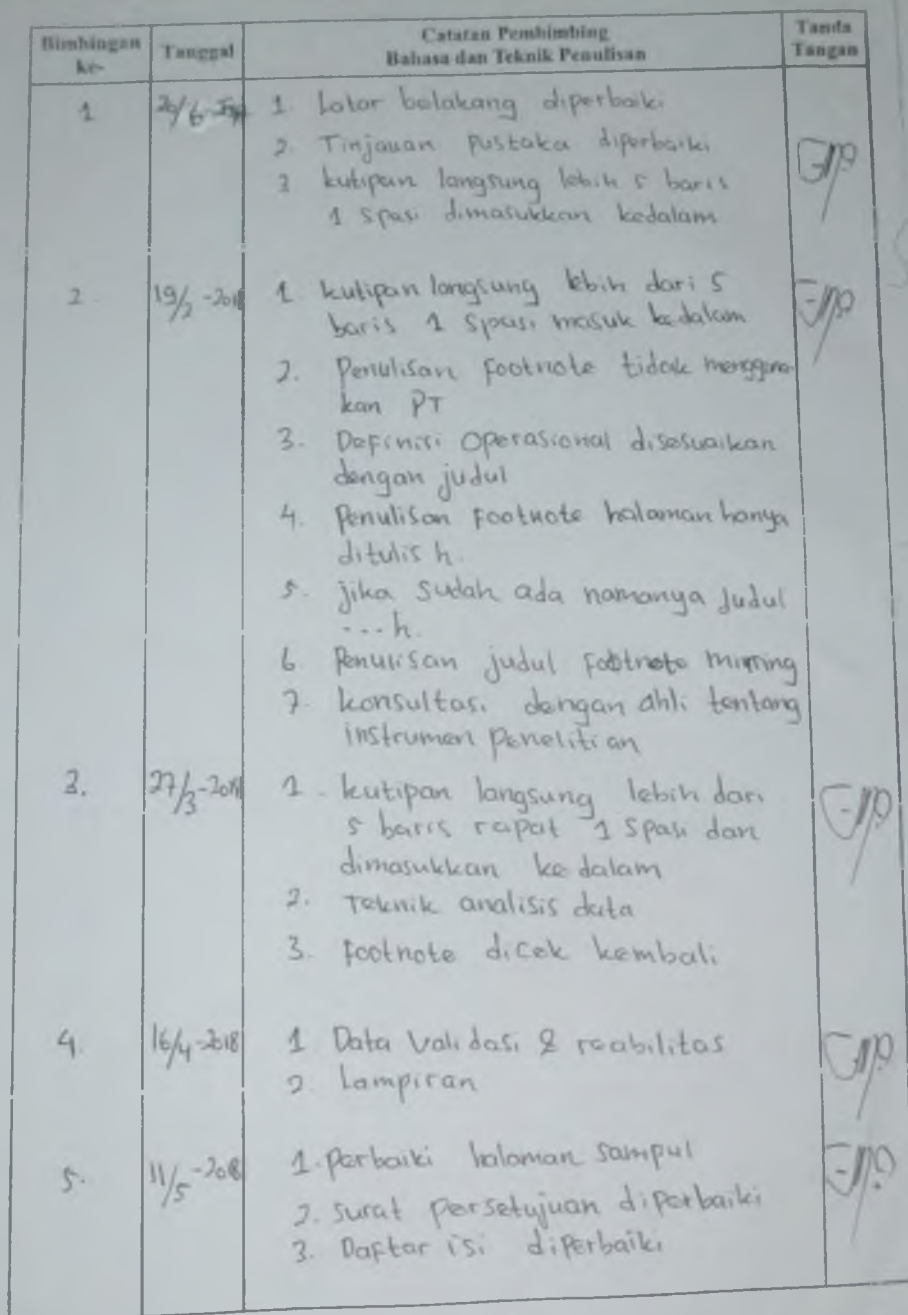 Bimbingan ke-
Tanggal
Catatan Pembimbing
Bahasa dan Teknik Penulisan
Tanda Tangan
1
1. Latar belakang diperbaiki
2. Tinjauan Pustaka diperbaiki
3 kutipan langsung lebih 5 baris
1 spasi dimasukkan kedalam
2.
19/2 -2018
1. kutipan langsung lebih dari 5
baris 1 spasi masuk kedalam
2. Penulisan footnote tidak mengguna
kan PT
3. Definisi Operasional disesuaikan
dengan judul
4. Penulisan Footnote halaman hanya
ditulis h.
5. jika sudah ada namanya Judul
... h.
6 Penulisan judul Footnote miring
7. konsultasi dengan ahli tentang
instrumen penelitian
3.
27/3-2018
1. kutipan langsung lebih dari
5 baris rapat 1 spasi dan
dimasukkan ke dalam
2. Teknik analisis data
3. Footnote dicek kembali
4.
16/4-2018
1 Data Validasi & reabilitas
2. Lampiran
5.
11/5-2018
1. perbaiki halaman sampul
2. surat persetujuan diperbaiki
3. Daftar isi diperbaiki